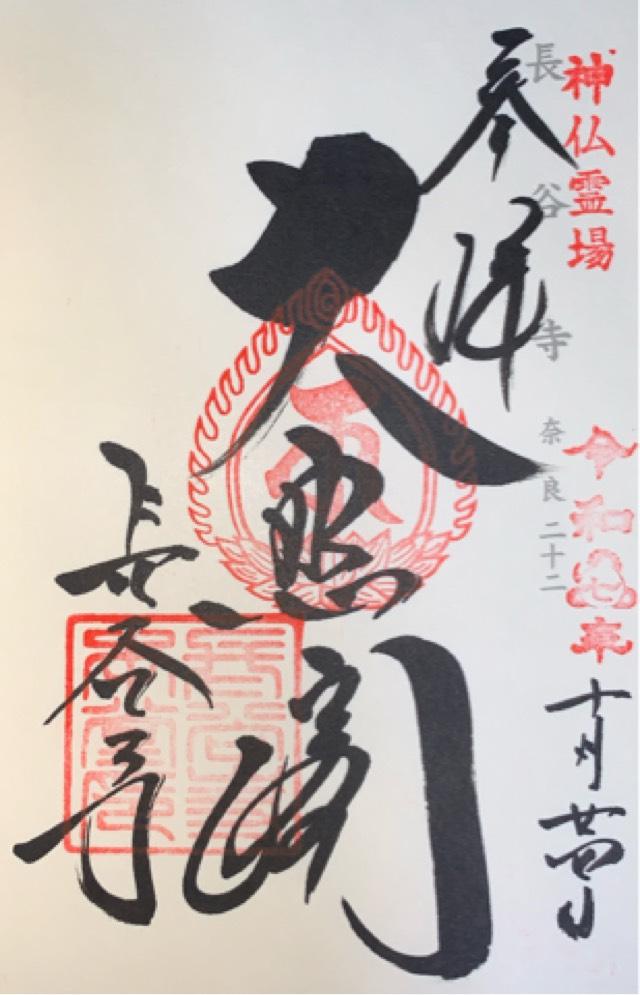 神仏霊場
令和元年十月廿四日
長谷寺 奈良二十二
奉拝
大悲閣
長谷寺